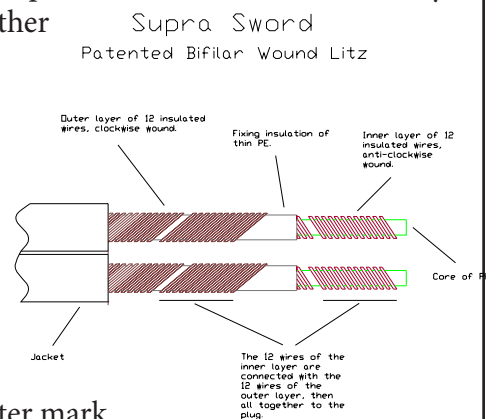 ther
Supra Sword
Patented Bifilar Wound Litz
Outer layer of 12 insulated
wires, clockwise wound.
Fixing insulation of
thin PE.
Inner layer of 12
insulated wires,
anti-clockwise
wound.
Core of
Jacket
The 12 wires of the
inner layer are
connected with the
12 wires of the
outer layer, then
all together to the
plug.
ter mark